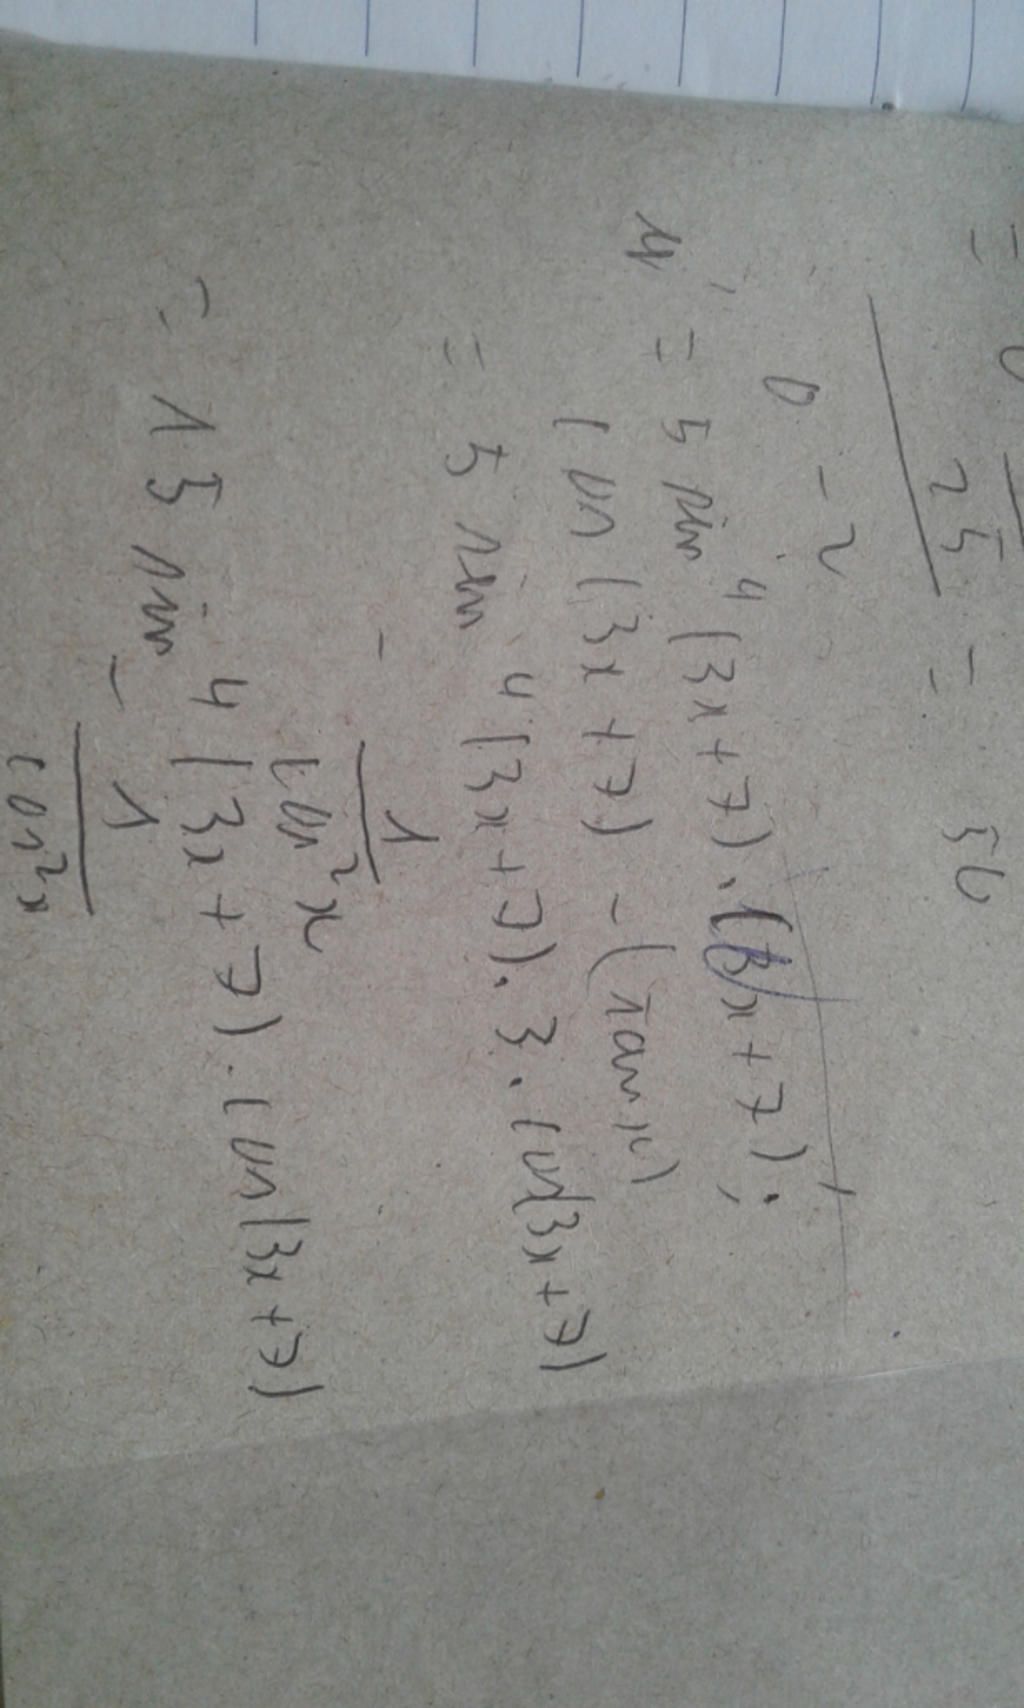 25 = 56
0 - 2
y' = 5 sin⁴(3x+7).(3x+7)'.
cos(3x+7) - (tan x)'
= 5 sin⁴(3x+7).3.cos(3x+7)
- 1/cos²x
= 15 sin⁴(3x+7).cos(3x+7)
- 1/cos²x